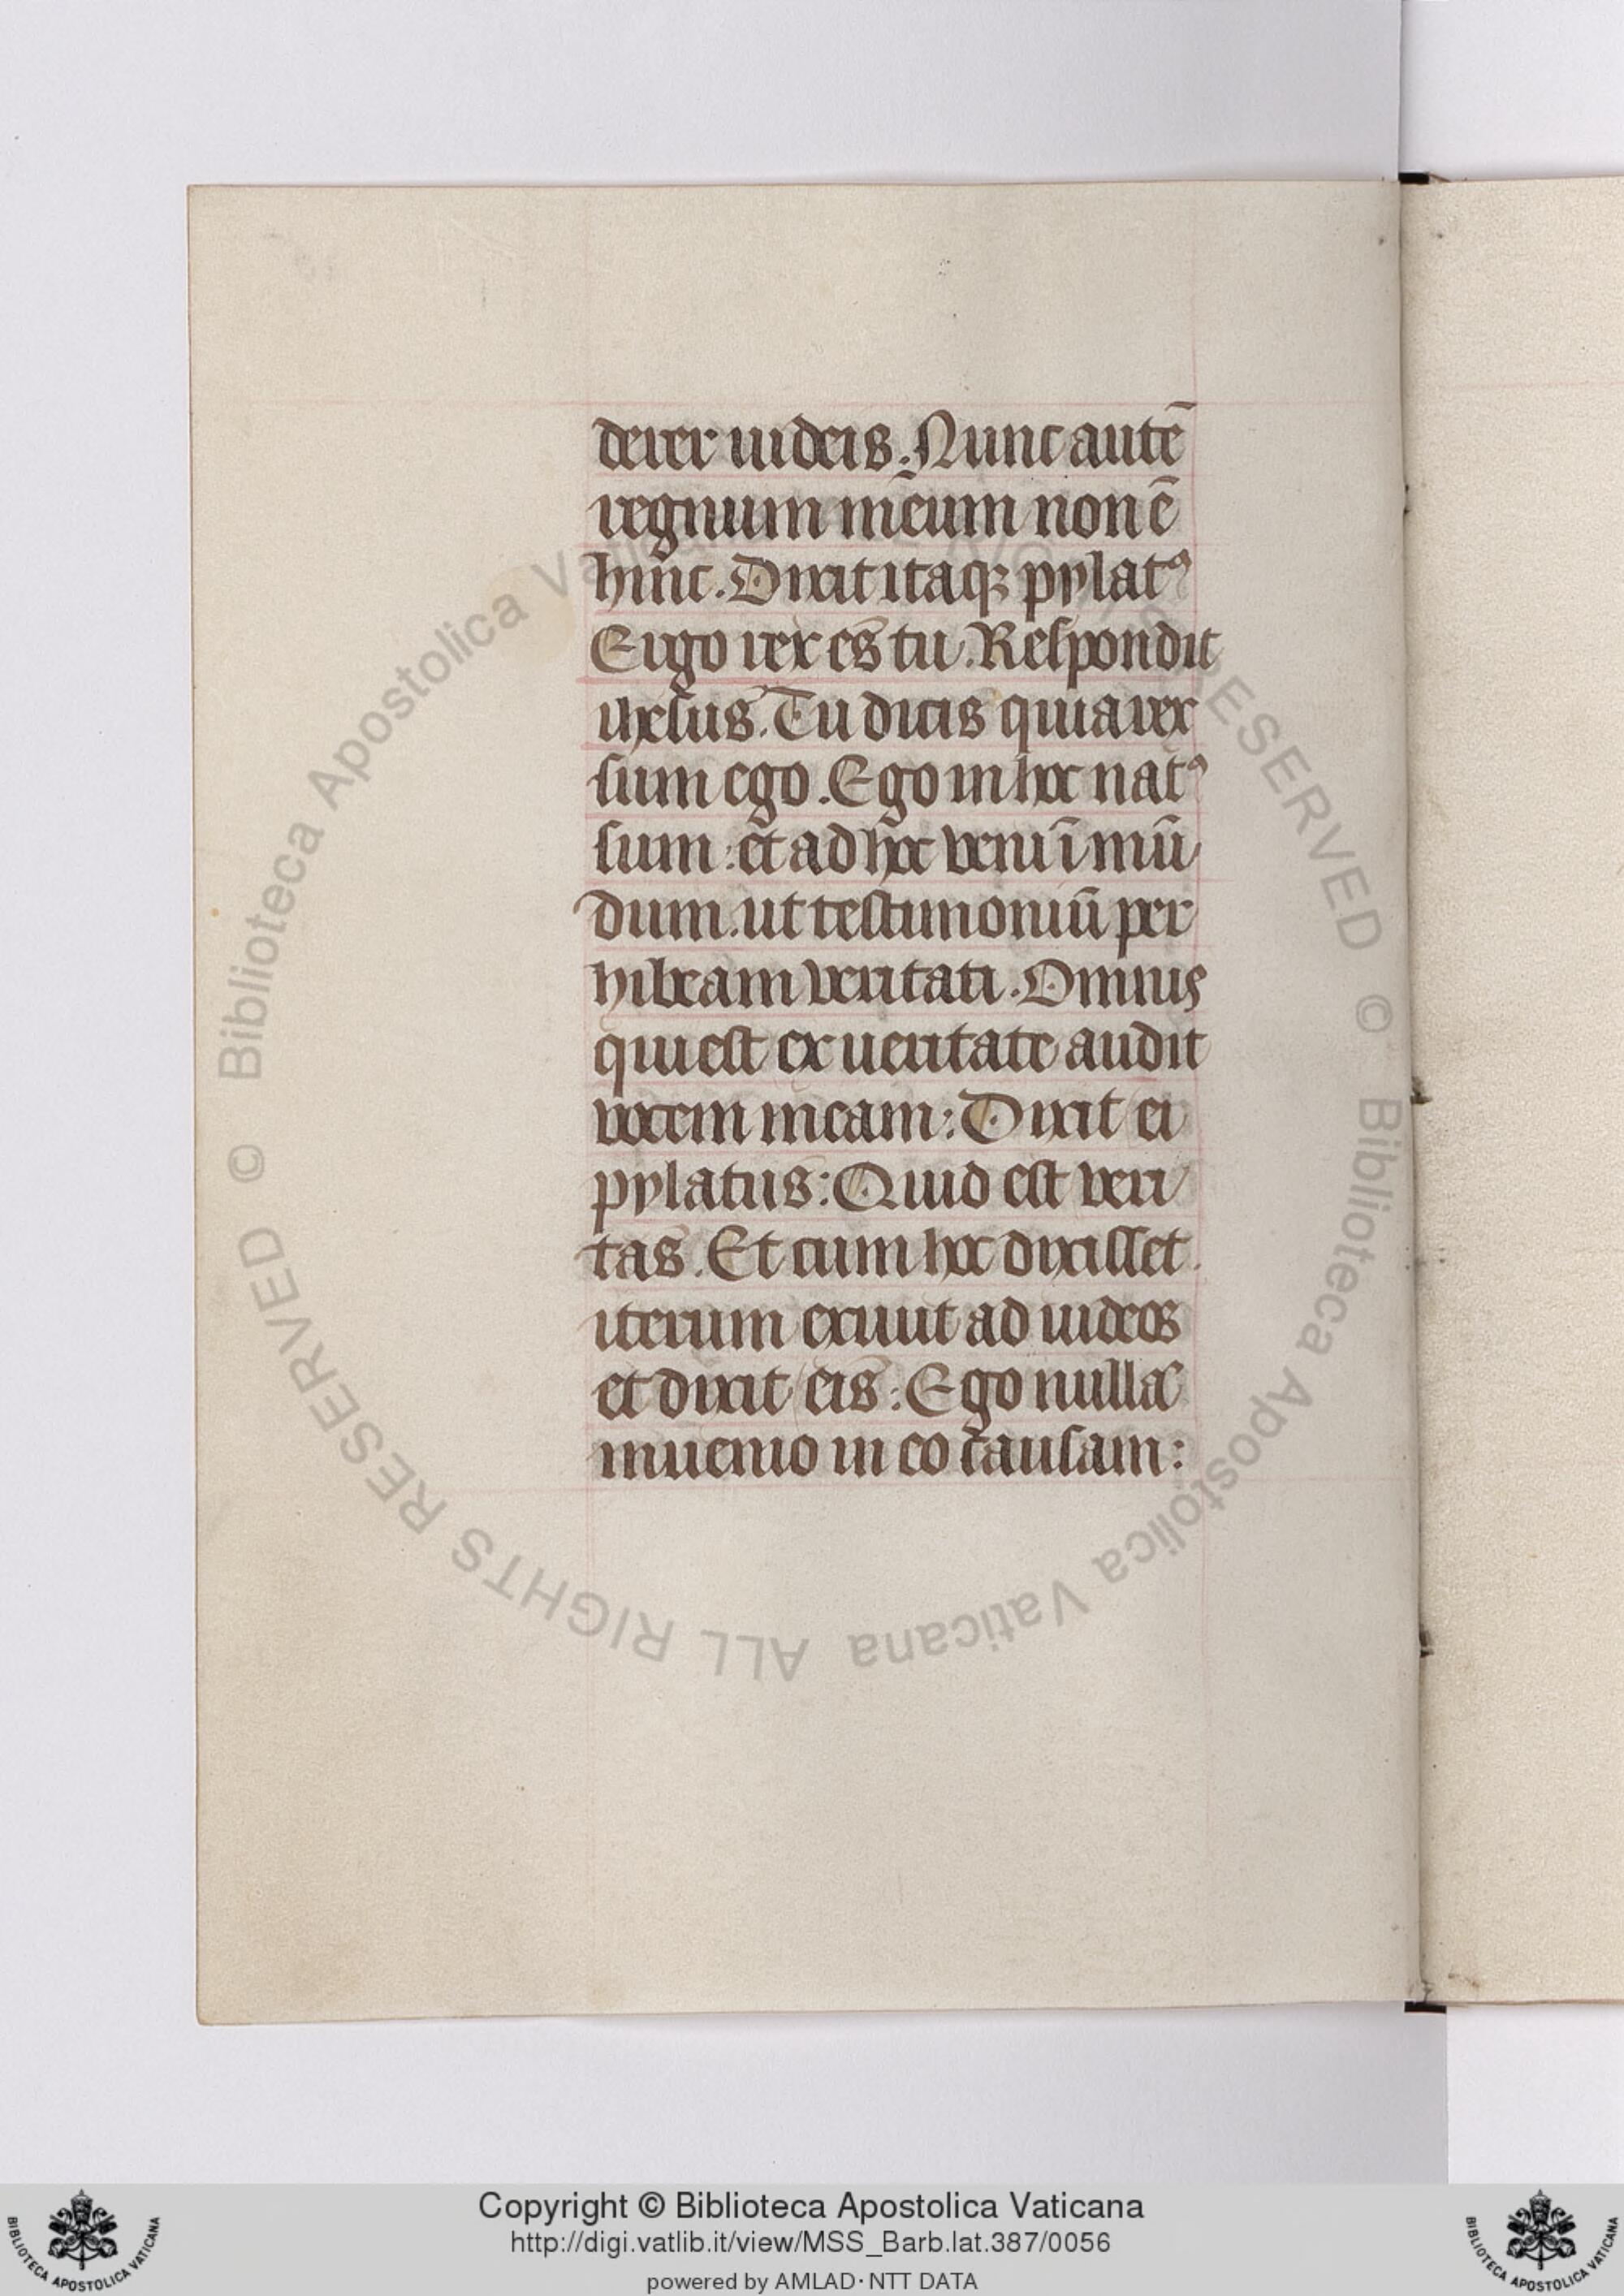 derer iudeis. Nunc autē
regnum meum non ē
hinc. Dixit itaqꝫ pylatꝰ
Ergo rex es tu. Respondit
ihesus. Tu dicis quia rex
sum ego. Ego in hoc natꝰ
sum: et ad hoc veni ī mū
dum. ut testimoniū per
hibeam veritati. Omnis
qui est ex ueritate audit
vocem meam: Dixit ei
pylatus: Quid est veri
tas. Et cum hoc dixisset.
iterum exiuit ad iudeos
et dixit eis: Ego nullā
inuenio in eo causam:
© Biblioteca Apostolica Vaticana ALL RIGHTS RESERVED
Copyright © Biblioteca Apostolica Vaticana
http://digi.vatlib.it/view/MSS_Barb.lat.387/0056
powered by AMLAD·NTT DATA
BIBLIOTECA APOSTOLICA VATICANA
BIBLIOTECA APOSTOLICA VATICANA